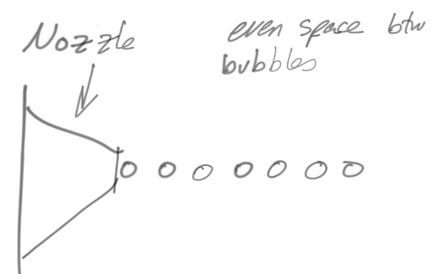 Nozzle
even space btw
bubbles